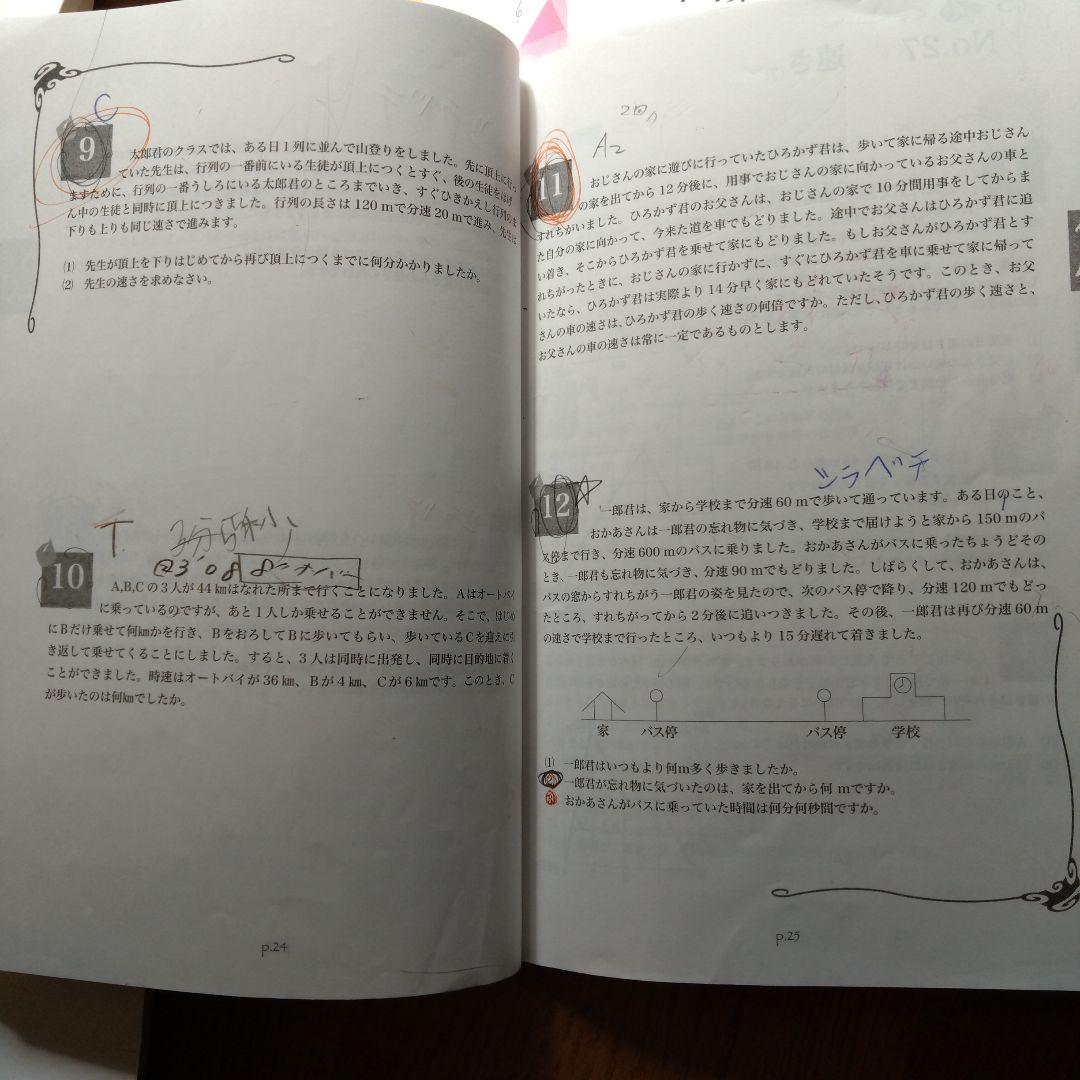 C
9
太郎君のクラスでは、ある日1列に並んで山登りをしました。先に頂上に行っ
ていた先生は、行列の一番前にいる生徒が頂上につくとすぐ、後の生徒をはげ
ますために、行列の一番うしろにいる太郎君のところまでいき、すぐひきかえし行列のま
ん中の生徒と同時に頂上につきました。行列の長さは120mで分速20mで進み、先生は
下りも上りも同じ速さで進みます。
(1) 先生が頂上を下りはじめてから再び頂上につくまでに何分かかりましたか。
(2) 先生の速さを求めなさい。
10
A,B,Cの3人が44㎞はなれた所まで行くことになりました。Aはオートバイ
に乗っているのですが、あと1人しか乗せることができません。そこで、はじめ
にBだけ乗せて何㎞かを行き、BをおろしてBに歩いてもらい、歩いているCを迎えに引
き返して乗せてくることにしました。すると、3人は同時に出発し、同時に目的地に着く
ことができました。時速はオートバイが36㎞、Bが4㎞、Cが6㎞です。このとき、C
が歩いたのは何㎞でしたか。
p.24
No.27 速さ
2回
A2
11
おじさんの家に遊びに行っていたひろかず君は、歩いて家に帰る途中おじさん
の家を出てから12分後に、用事でおじさんの家に向かっているお父さんの車と
すれちがいました。ひろかず君のお父さんは、おじさんの家で10分間用事をしてからま
た自分の家に向かって、今来た道を車でもどりました。途中でお父さんはひろかず君に追
い着き、そこからひろかず君を乗せて家にもどりました。もしお父さんがひろかず君とす
れちがったときに、おじさんの家に行かずに、すぐにひろかず君を車に乗せて家に帰って
いたなら、ひろかず君は実際より14分早く家にもどれていたそうです。このとき、お父
さんの車の速さは、ひろかず君の歩く速さの何倍ですか。ただし、ひろかず君の歩く速さと、
お父さんの車の速さは常に一定であるものとします。
12
一郎君は、家から学校まで分速60mで歩いて通っています。ある日のこと、
おかあさんは一郎君の忘れ物に気づき、学校まで届けようと家から150mのバ
ス停まで行き、分速600mのバスに乗りました。おかあさんがバスに乗ったちょうどその
とき、一郎君も忘れ物に気づき、分速90mでもどりました。しばらくして、おかあさんは、
バスの窓からすれちがう一郎君の姿を見たので、次のバス停で降り、分速120mでもどっ
たところ、すれちがってから2分後に追いつきました。その後、一郎君は再び分速60m
の速さで学校まで行ったところ、いつもより15分遅れて着きました。
家 バス停 バス停 学校
(1) 一郎君はいつもより何m多く歩きましたか。
一郎君が忘れ物に気づいたのは、家を出てから何mですか。
おかあさんがバスに乗っていた時間は何分何秒間ですか。
p.25